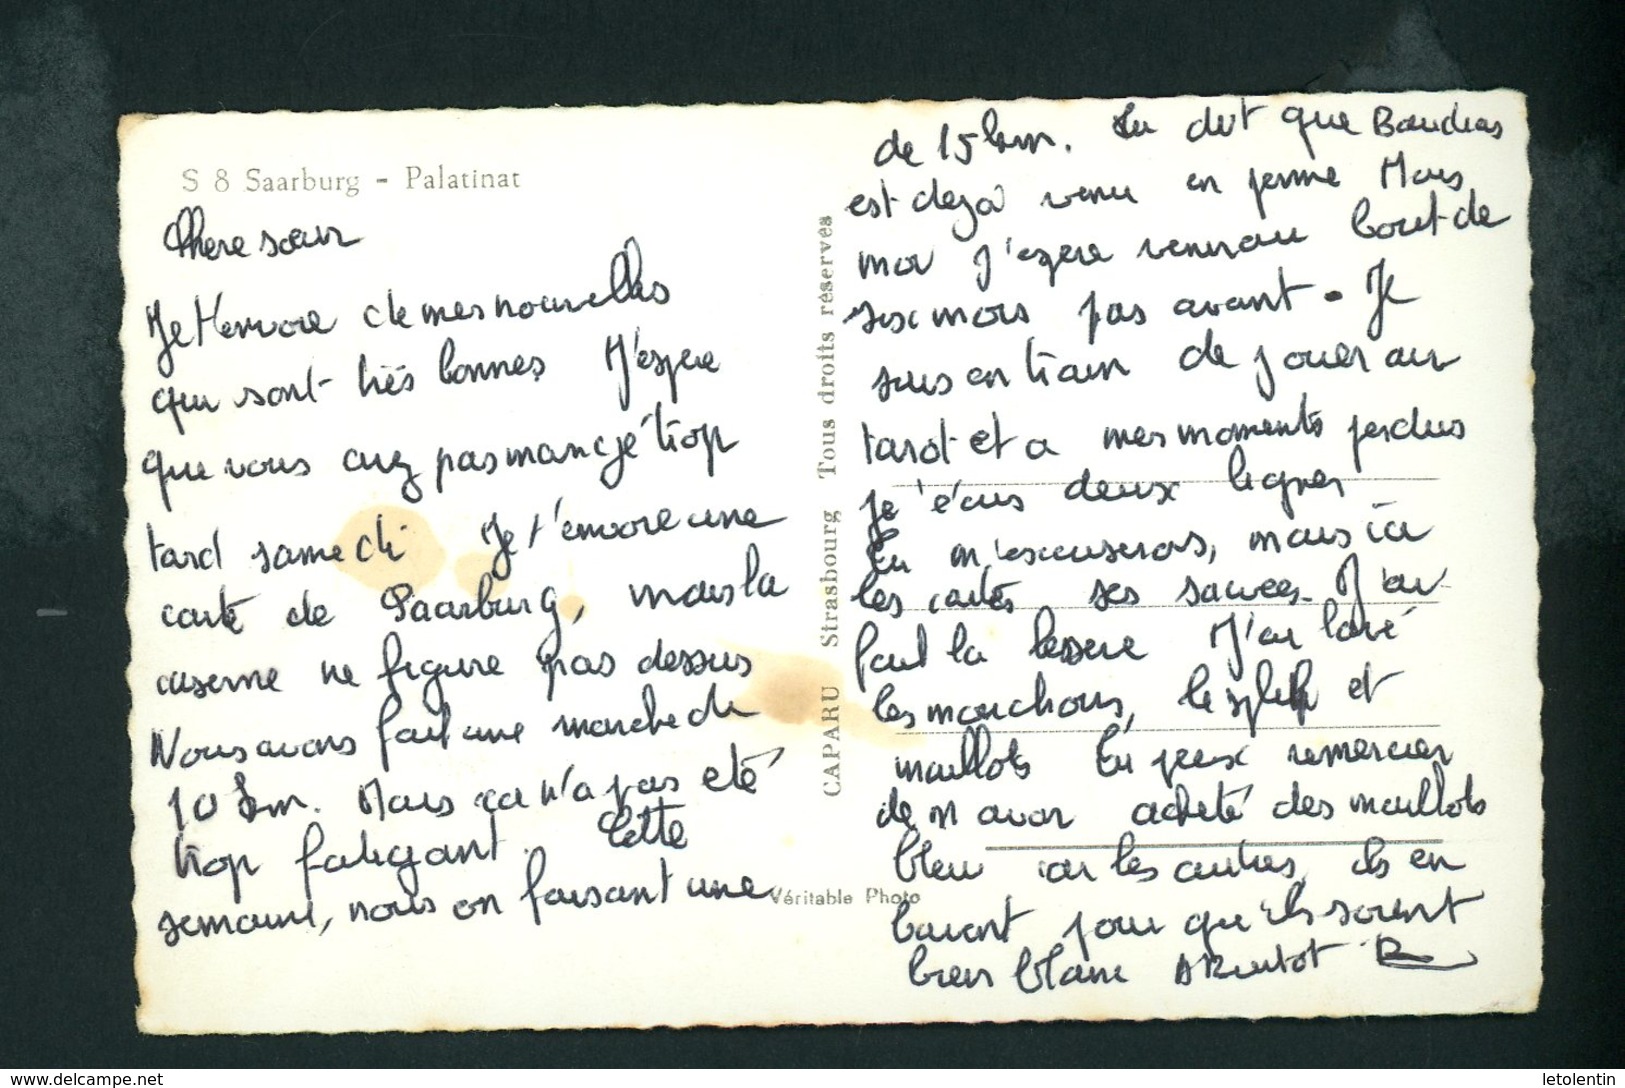 S 8 Saarburg - Palatinat
Chere sœur
Je t'envoie de mes nouvelles
qui sont très bonnes J'espere
que vous avez pas mangé trop
tard samedi Je t'envoie une
carte de Saarburg, mais la
caserne ne figure pas dessus
Nous avons fait une marche de
10 km. Mais ça n'a pas eté
trop fatigant. Cette
semaine, nous en faisant une
de 15 km. Tu dit que
est deja venu en perme Mais
moi j'espere venir au bout de
six mois pas avant. Je
suis en train de jouer au
tarot et a mes moments perdus
je t'écris deux lignes
Tu m'excuseras, mais ici
les cartes ses sacrées. J'ai
fait la lessive J'ai lavé
les mouchoirs, le slip et
maillots Tu peux remercier
de m avoir acheté des maillots
bleu car les autres, ils en
bavent pour qu'ils soient
bien blanc A Bientot R
CAPARU Strasbourg Tous droits réservés
Véritable Photo
www.delcampe.net
letolentin